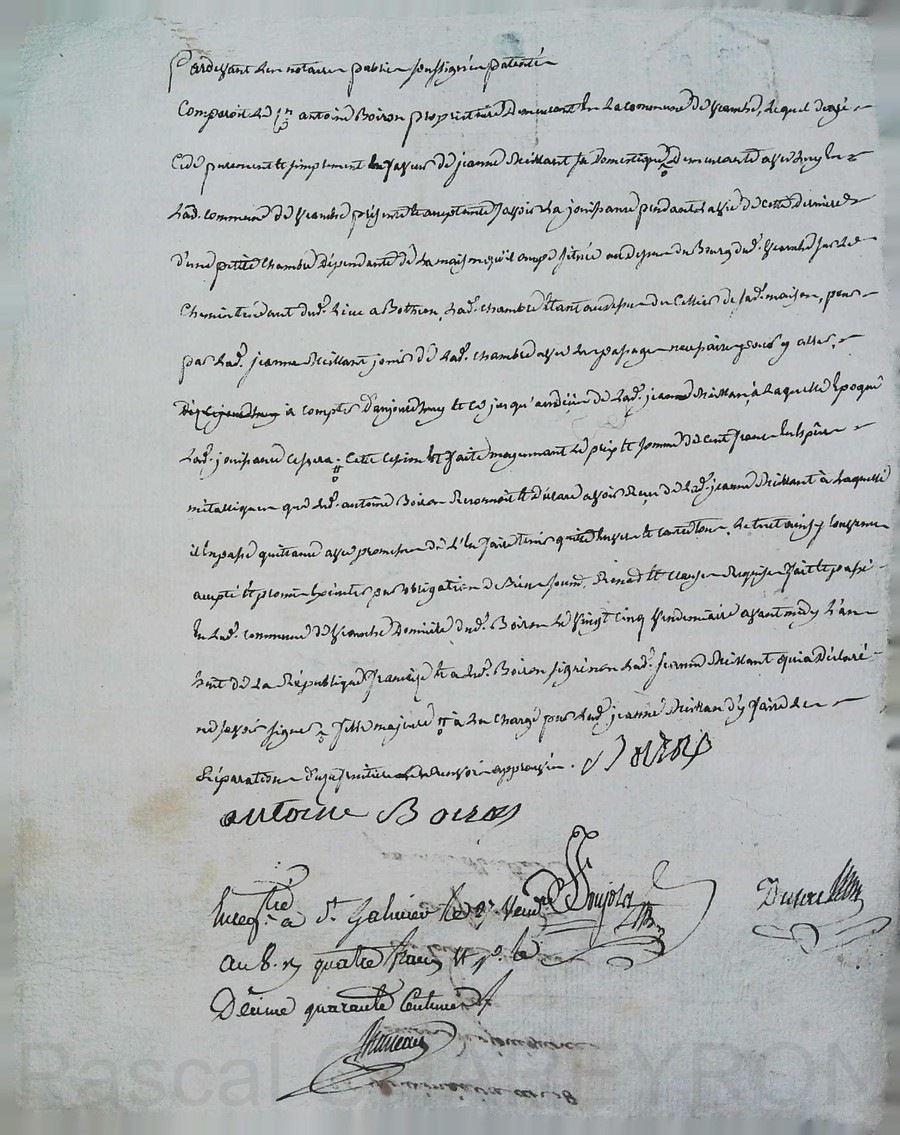 Pardevant les notaires publics soussignés patentés
Comparoit le c.en antoine Boiron propriétaire demeurant en la commune de Veauche, lequel de gré
Cède purement et simplement en faveur de jeanne Meillant sa domestique demeurante avec luy en
lad. commune de Veauche présente et acceptante savoir la jouissance pendant la vie de cette dernière
d'une petite chambre dépendante de la maison qu'il occupe située au dessus du Bourg dud. Veauche sur le
Chemin tendant dud. lieu a Bothéon, lad. chambre étant au dessus du Cellier de sad. maison, pour
par lad. jeanne Meillant jouir de lad. chambre avec les passages nécessaires pour y aller,
à compter d'aujourd'huy et ce jusqu'au décès de lad. jeanne Meillan, à laquelle époque
lad. jouissance cessera. Cette cession est faite moyennant le prix et somme de cent francs en espèces
métalliques que led. antoine Boiron reconnoit et déclare avoir reçu de lad. jeanne Meillant à laquelle
il en passe quittance avec promesse de l'en faire tenir quitte envers et contre tous. Le tout ainsy convenu
accepté et promis exécuter par obligation de biens, soumis. renon. et clauses requises. fait et passé
en lad. commune de Veauche domicile dud. Boiron le vingt cinq vendemiaire avant midy l'an
huit de la République française et a led. Boiron signé non lad. jeanne Meillant qui a déclaré
ne savoir signer fille majeure à la charge par lad. jeanne Meillan d'y faire les
réparations d'usufruitier renvois approuvés. Boiron
antoine Boiron
Enregtré à St. Galmier le 27 vend.
au 8. Ry quatre francs
Décime quarante Centimes
Pascal CHAREYRON